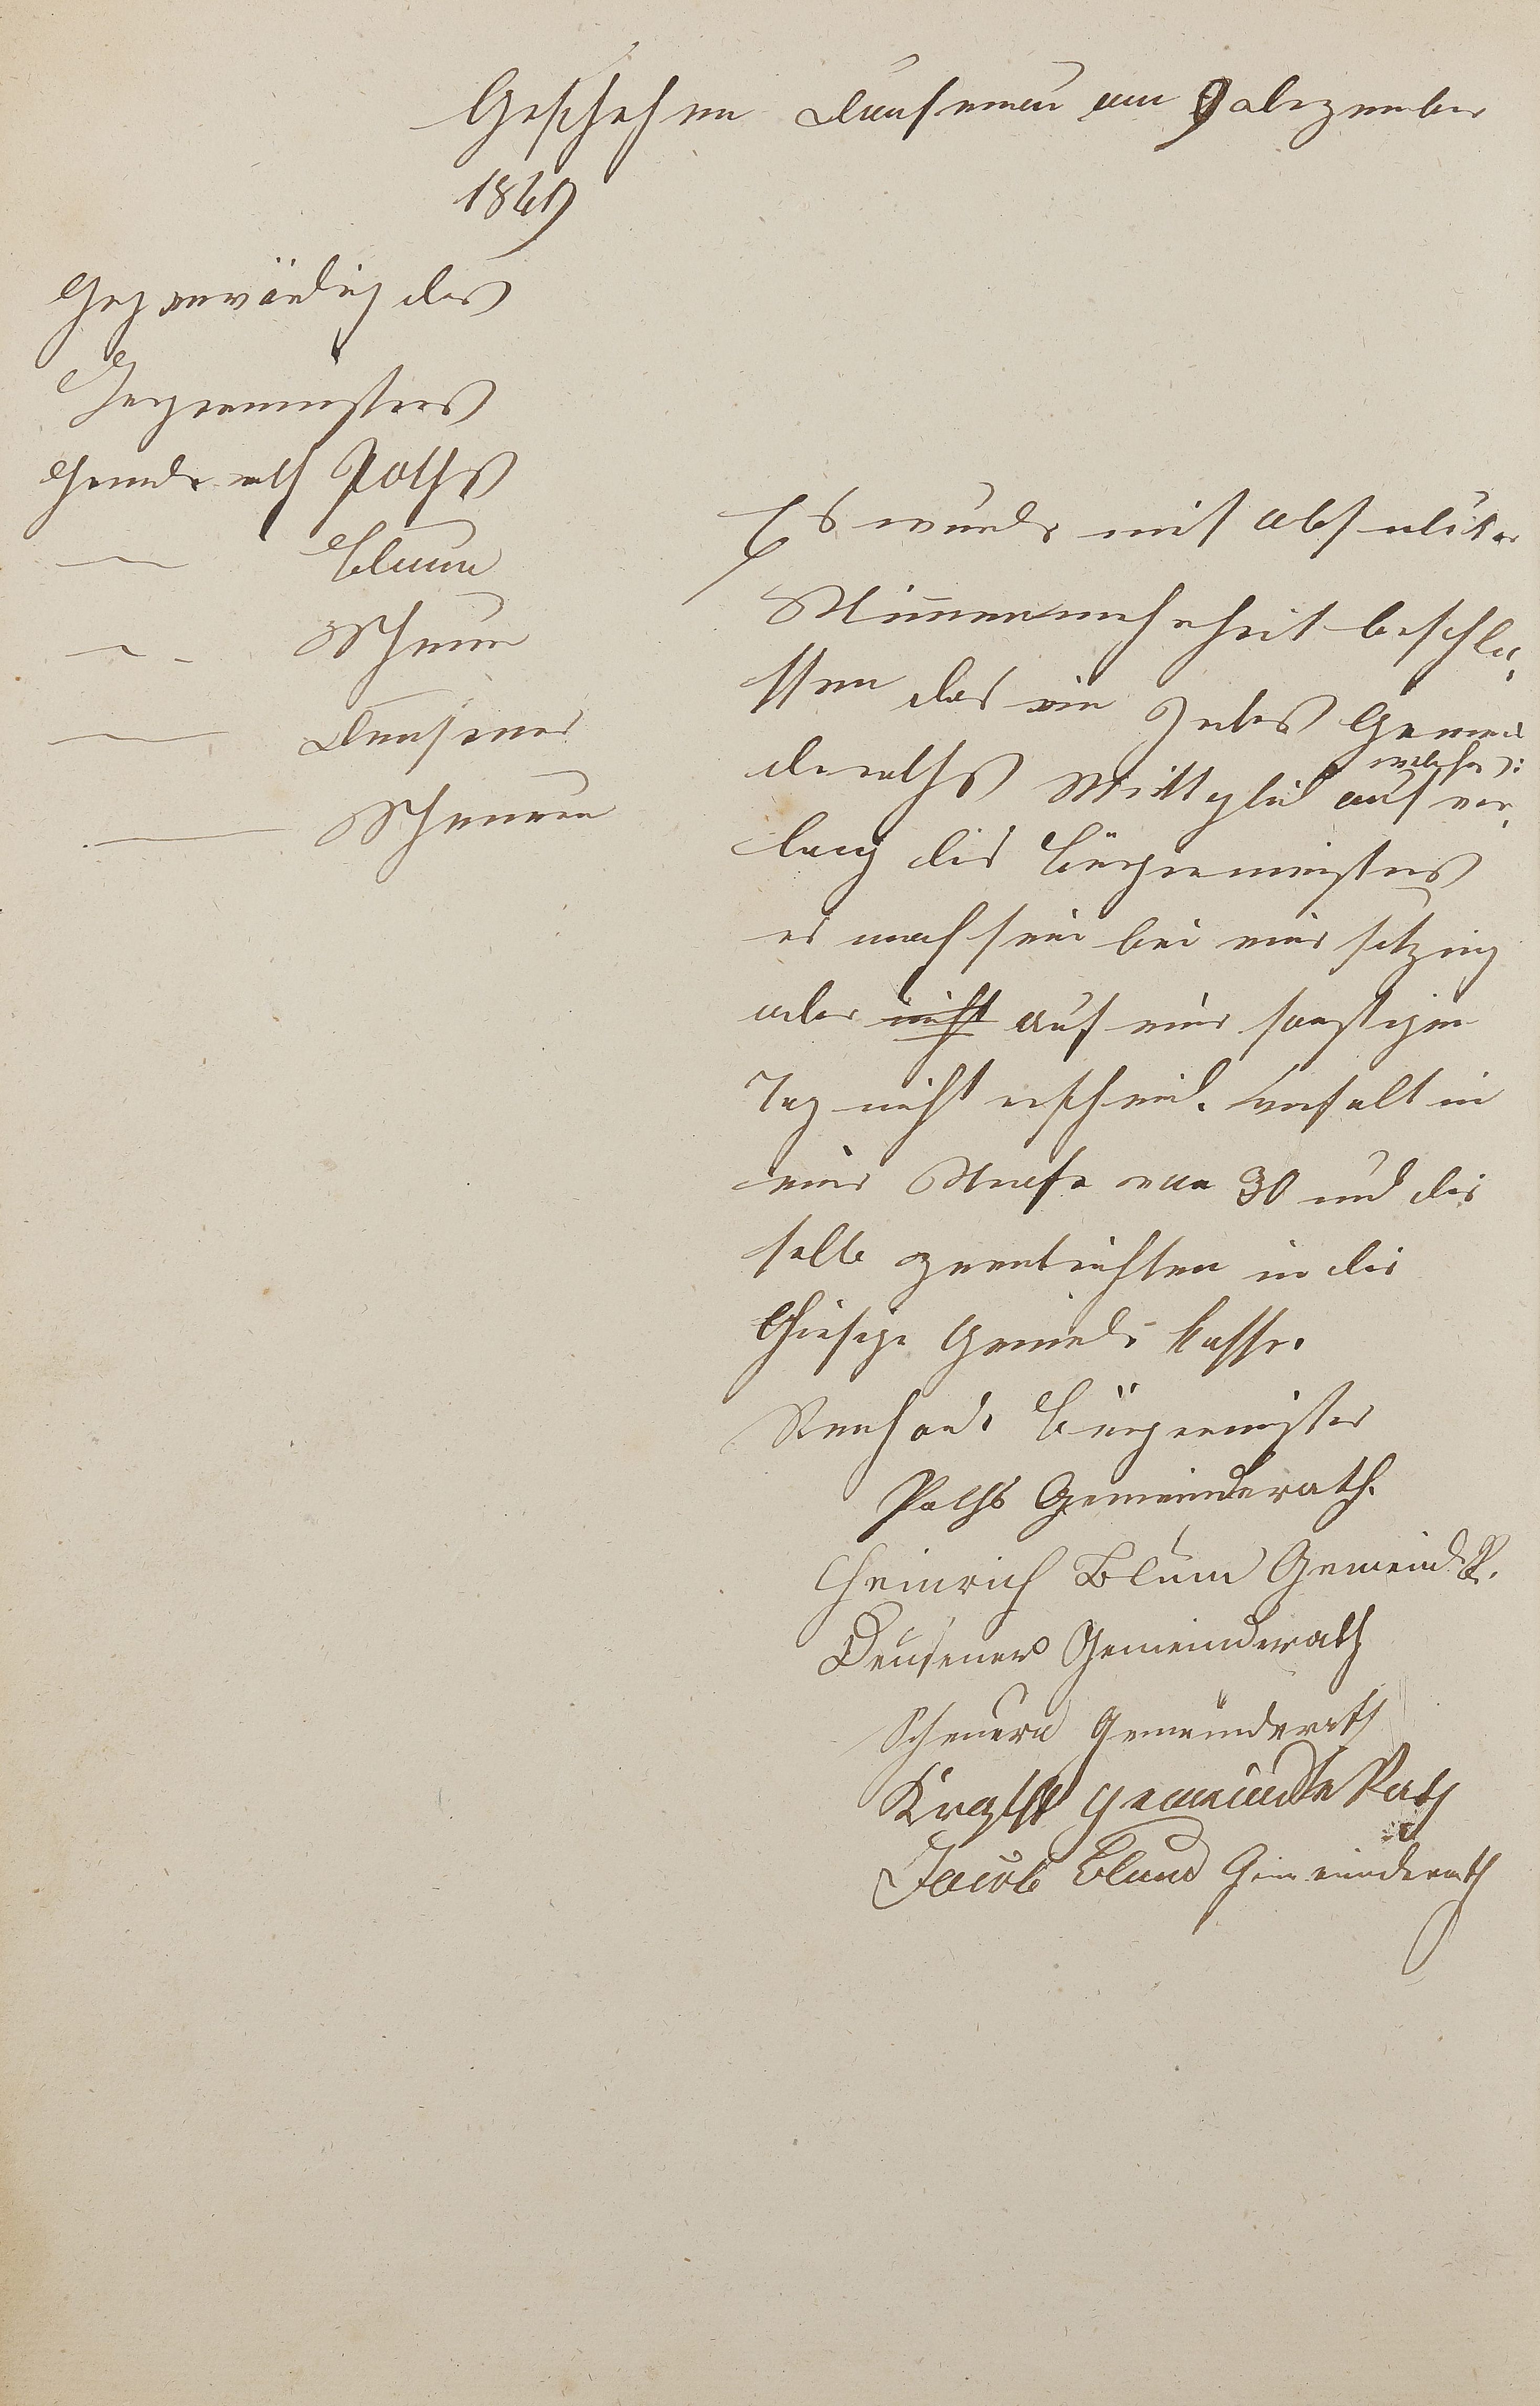 Geschehen Dausenau am 9 Dezember
1869
Gegenwärdig des
Bürgermeisters
Gemeinderath Poths
— Blum
— Scheuer
— Deusener
— Scheuern
Es wurde mit absoluter
Stimmenmehrheit beschlo¬
ssen das ein Jedes Gemein
deraths Mittglied welches: auf ver¬
lang des Bürgermeisters
es mach sein bei einer sitzung
oder nicht auf eine sonstigen
Tag nicht erscheind. verfalt in
einer Strafe von 30 und die
selbe zu entrichten in die
Hiesige Gemeinde kasse.
Bürgermeister
Poths Gemeinderath.
Heinrich Blum Gemeind R.
Deusener Gemeinderath
Scheuern Gemeinderath
Krafft gemeinde Rath
Jacob Blum Gemeinderath